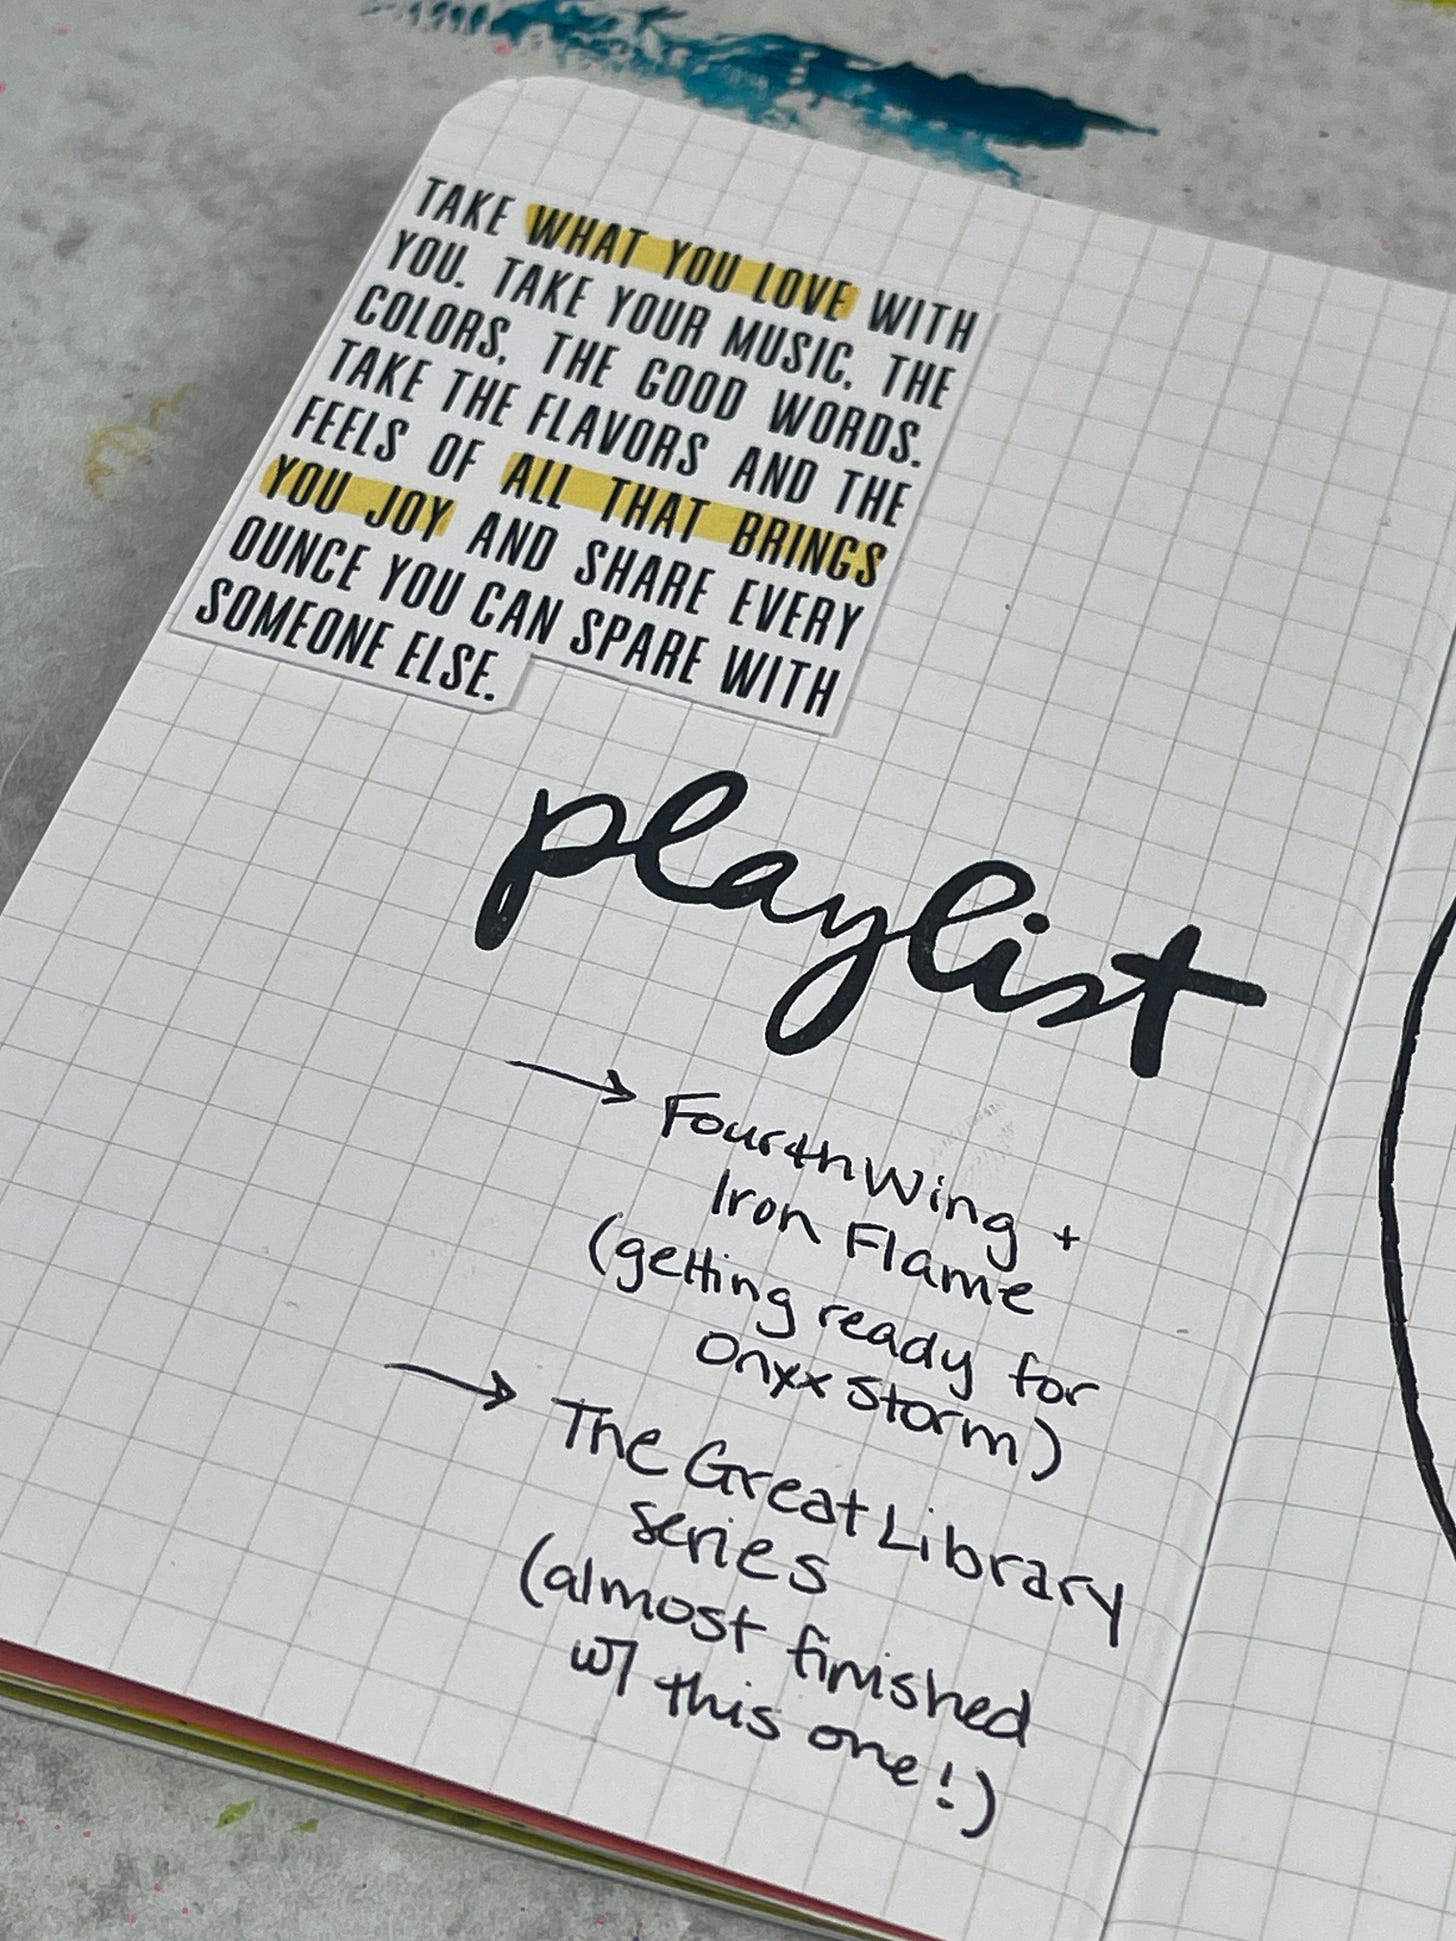 TAKE WHAT YOU LOVE WITH
YOU. TAKE YOUR MUSIC, THE
COLORS, THE GOOD WORDS.
TAKE THE FLAVORS AND THE
FEELS OF ALL THAT BRINGS
YOU JOY AND SHARE EVERY
OUNCE YOU CAN SPARE WITH
SOMEONE ELSE.
playlist
→ Fourth Wing +
Iron Flame
(getting ready for
Onyx Storm)
→ The Great Library
series
(almost finished
w/ this one!)